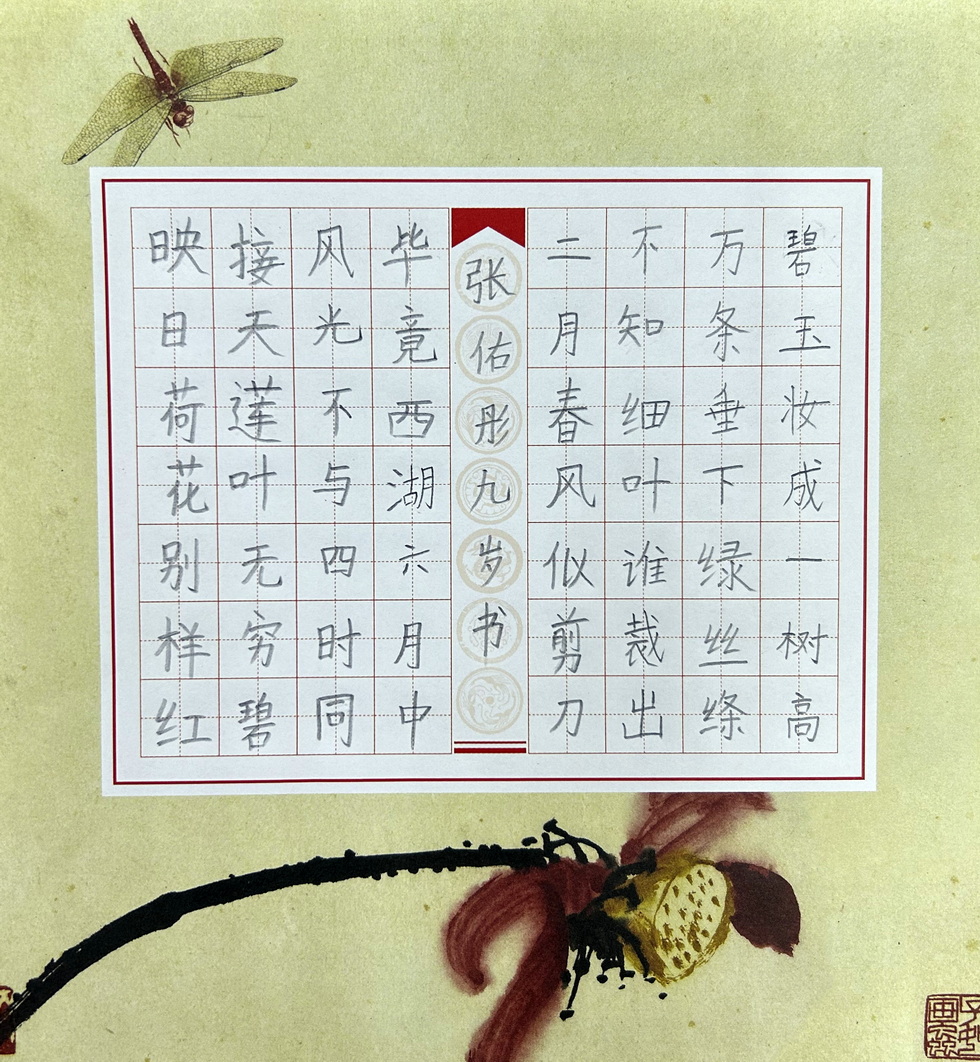 碧玉妆成一树高
万条垂下绿丝绦
不知细叶谁裁出
二月春风似剪刀
张佑彤九岁书
毕竟西湖六月中
风光不与四时同
接天莲叶无穷碧
映日荷花别样红